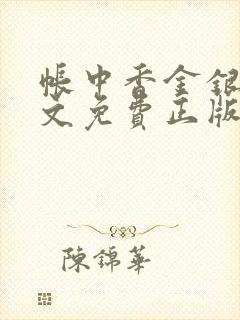 帳中香金銀
文免費正版
陳錦華